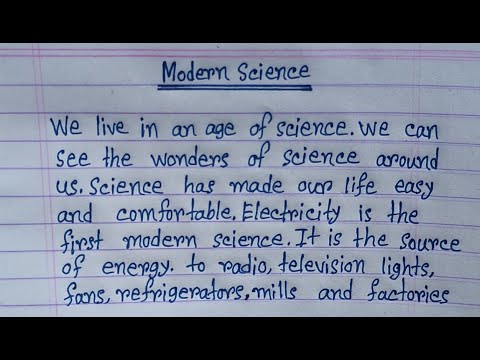 Modern Science
We live in an age of science. We can
see the wonders of science around
us. Science has made our life easy
and comfortable. Electricity is the
first modern science. It is the source
of energy. to radio, television lights,
fans, refrigerators, mills and factories